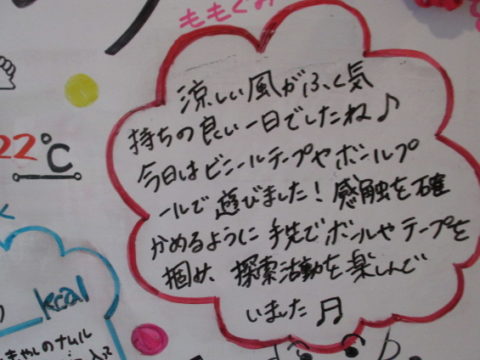 ももぐみ
涼しい風がふく気
持ちの良い一日でしたね♪
今日はビニールテープやボールプ
ールで遊びました！感触を確
かめるように手先でボールやテープを
掴み、探索活動を楽しんで
いました♬
22℃
kcal
のナムル